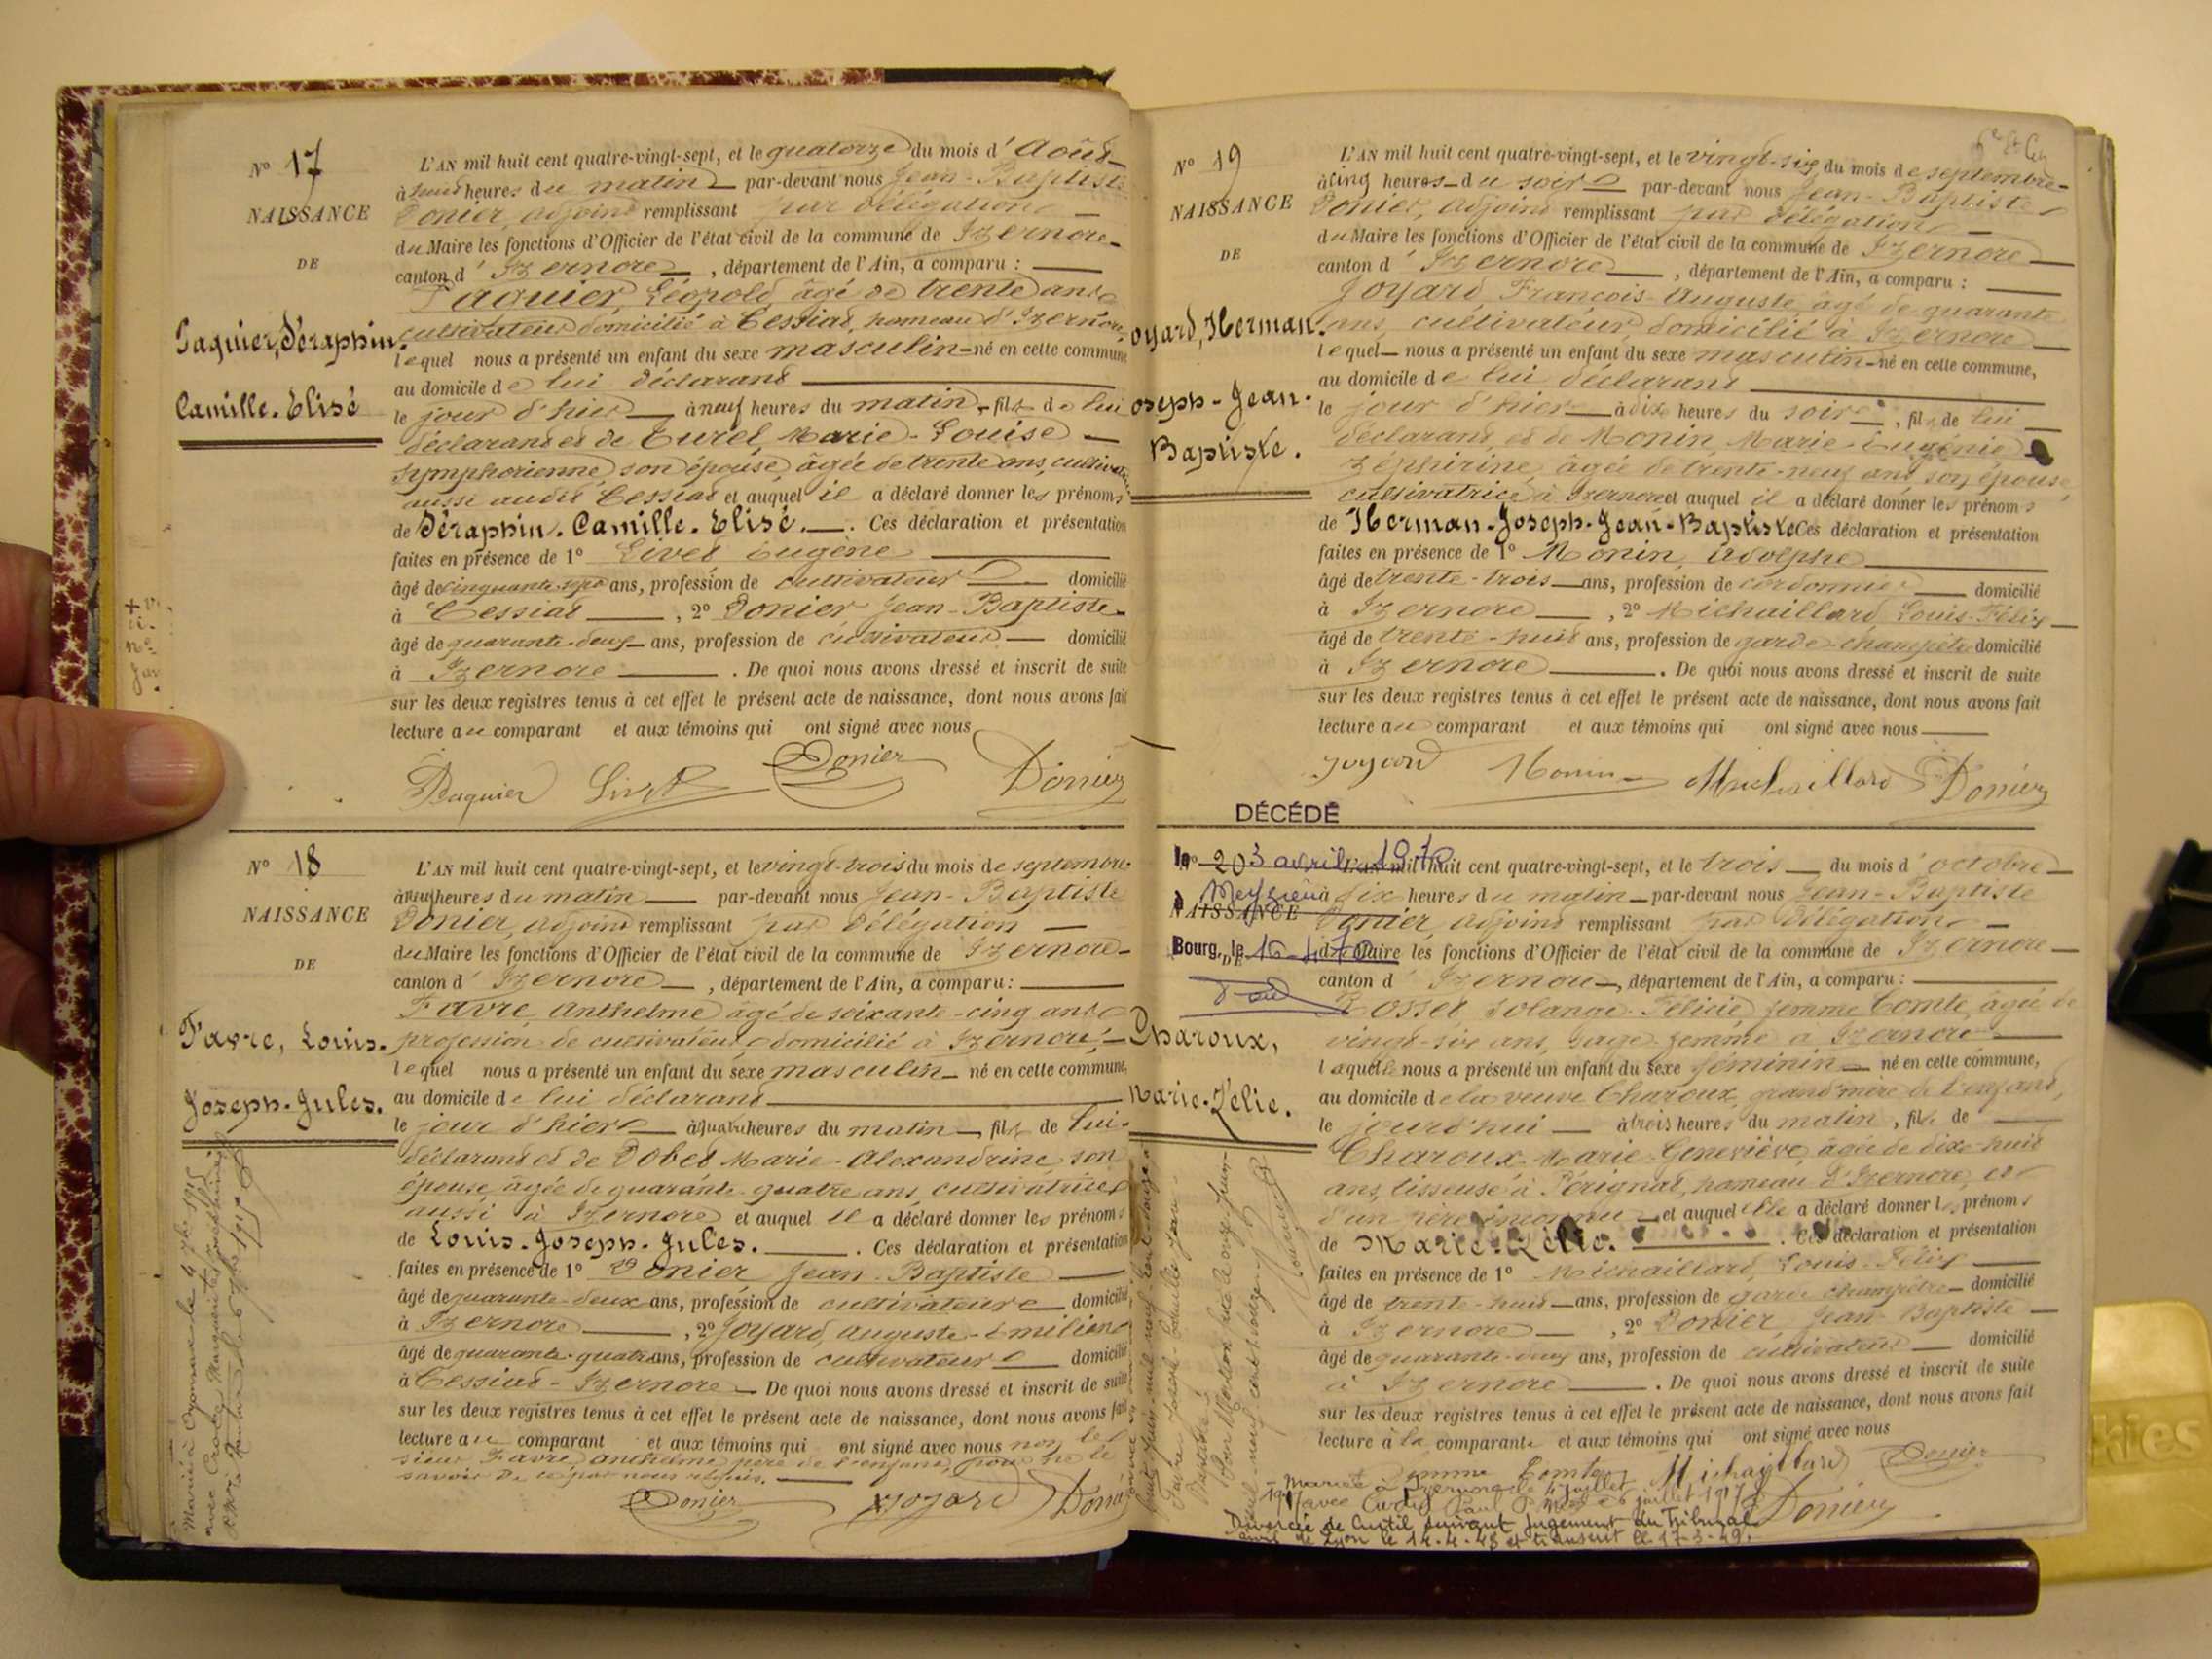 N° 17
NAISSANCE
DE
Paquier, Séraphin.
Camille. Elisé
L'AN mil huit cent quatre-vingt-sept, et le quatorze du mois d'Août
à heures du matin par-devant nous Jean-Baptiste
Donier, adjoint remplissant par délégation
du Maire les fonctions d'Officier de l'état civil de la commune de Izernore
canton d'Izernore, département de l'Ain, a comparu :
Paquier, Léopold, âgé de trente ans
cultivateur domicilié à Cessiat, hameau d'Izernore,
lequel nous a présenté un enfant du sexe masculin né en cette commune
au domicile de lui déclarant
le jour d'hier à neuf heures du matin, fils de lui
déclarant et de Turel, Marie-Louise
Symphorienne, son épouse, âgée de trente ans, cultivatrice
aussi audit Cessiat et auquel il a déclaré donner les prénoms
de Séraphin. Camille. Elisé. Ces déclaration et présentation
faites en présence de 1° Livet Eugène
âgé de cinquante sept ans, profession de cultivateur domicilié
à Cessiat, 2° Donier Jean-Baptiste
âgé de quarante-deux ans, profession de cultivateur domicilié
à Izernore. De quoi nous avons dressé et inscrit de suite
sur les deux registres tenus à cet effet le présent acte de naissance, dont nous avons fait
lecture au comparant et aux témoins qui ont signé avec nous
Paquier Livet Donier Donier
N° 18
NAISSANCE
DE
Favre, Louis.
Joseph. Jules.
L'AN mil huit cent quatre-vingt-sept, et le vingt-trois du mois de septembre
à neuf heures du matin par-devant nous Jean-Baptiste
Donier, adjoint remplissant par délégation
du Maire les fonctions d'Officier de l'état civil de la commune de Izernore
canton d'Izernore, département de l'Ain, a comparu :
Favre, Anthelme âgé de soixante-cinq ans
profession de cultivateur domicilié à Izernore,
lequel nous a présenté un enfant du sexe masculin né en cette commune,
au domicile de lui déclarant
le jour d'hier à quatre heures du matin, fils de lui
déclarant et de Dobet Marie-Alexandrine, son
épouse, âgée de quarante-quatre ans, cultivatrice
aussi à Izernore et auquel il a déclaré donner les prénoms
de Louis. Joseph. Jules. Ces déclaration et présentation
faites en présence de 1° Donier Jean-Baptiste
âgé de quarante-deux ans, profession de cultivateur domicilié
à Izernore, 2° Joyard, Auguste-Emilien
âgé de quarante-quatre ans, profession de cultivateur domicilié
à Cessiat-Izernore De quoi nous avons dressé et inscrit de suite
sur les deux registres tenus à cet effet le présent acte de naissance, dont nous avons fait
lecture au comparant et aux témoins qui ont signé avec nous non le
sieur Favre, anthelme père de l'enfant, pour ne le
savoir de ce par nous requis.
Donier Joyard Donier
Marié à Oyonnax le 4 1915
avec
N° 19
NAISSANCE
DE
oyard, Herman.
oseph-Jean-
Baptiste.
L'AN mil huit cent quatre-vingt-sept, et le vingt-six du mois de septembre
à cinq heures du soir par-devant nous Jean-Baptiste
Donier, adjoint remplissant par délégation
du Maire les fonctions d'Officier de l'état civil de la commune de Izernore
canton d'Izernore, département de l'Ain, a comparu :
Joyard, François-Auguste âgé de quarante
ans, cultivateur, domicilié à Izernore
lequel nous a présenté un enfant du sexe masculin né en cette commune,
au domicile de lui déclarant
le jour d'hier à dix heures du soir, fils de lui
déclarant et de Monin, Marie-Eugénie
Zéphirine, âgée de trente-neuf ans son épouse,
cultivatrice à Izernore et auquel il a déclaré donner les prénoms
de Herman-Joseph-Jean-Baptiste Ces déclaration et présentation
faites en présence de 1° Monin, Adolphe
âgé de trente-trois ans, profession de cordonnier domicilié
à Izernore, 2° Michaillard, Louis-Félix
âgé de trente-huit ans, profession de garde-champêtre domicilié
à Izernore. De quoi nous avons dressé et inscrit de suite
sur les deux registres tenus à cet effet le présent acte de naissance, dont nous avons fait
lecture au comparant et aux témoins qui ont signé avec nous
Joyard Monin Michaillard Donier
DÉCÉDÉ
le 3 avril 1970
à Meyzieu
Bourg, le 16-4-70
N° 20
NAISSANCE
DE
Charoux,
Marie-Zélie.
L'AN mil huit cent quatre-vingt-sept, et le trois du mois d'octobre
à dix heures du matin par-devant nous Jean-Baptiste
Donier, adjoint remplissant par délégation
du Maire les fonctions d'Officier de l'état civil de la commune de Izernore
canton d'Izernore, département de l'Ain, a comparu :
Rosset Solange-Félicie femme Comte, âgée de
vingt-six ans, sage-femme à Izernore
laquelle nous a présenté un enfant du sexe féminin né en cette commune,
au domicile de la veuve Charoux, grand'mère de l'enfant,
le jourd'hui à trois heures du matin, fil de
Charoux, Marie-Geneviève, âgée de dix-huit
ans, tisseuse à Pérignat, hameau d'Izernore, et
d'un père inconnu et auquel elle a déclaré donner les prénoms
de Marie-Zélie. Ces déclaration et présentation
faites en présence de 1° Michaillard, Louis-Félix
âgé de trente-huit ans, profession de garde champêtre domicilié
à Izernore, 2° Donier Jean Baptiste
âgé de quarante-deux ans, profession de cultivateur domicilié
à Izernore. De quoi nous avons dressé et inscrit de suite
sur les deux registres tenus à cet effet le présent acte de naissance, dont nous avons fait
lecture à la comparante et aux témoins qui ont signé avec nous
femme Comte Michaillard Donier
Donier
Mariée à Izernore le 4 juillet
1917 avec Curtil Paul 6 juillet 1917
Divorcée de Curtil suivant jugement du Tribunal
civil de Lyon le 14-4-48 et transcrit le 17-3-49.